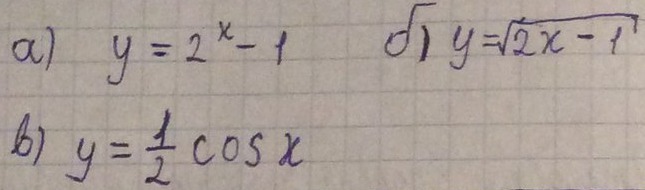 а) y = 2^x - 1 б) y = √(2x - 1)
в) y = 1/2 cos x